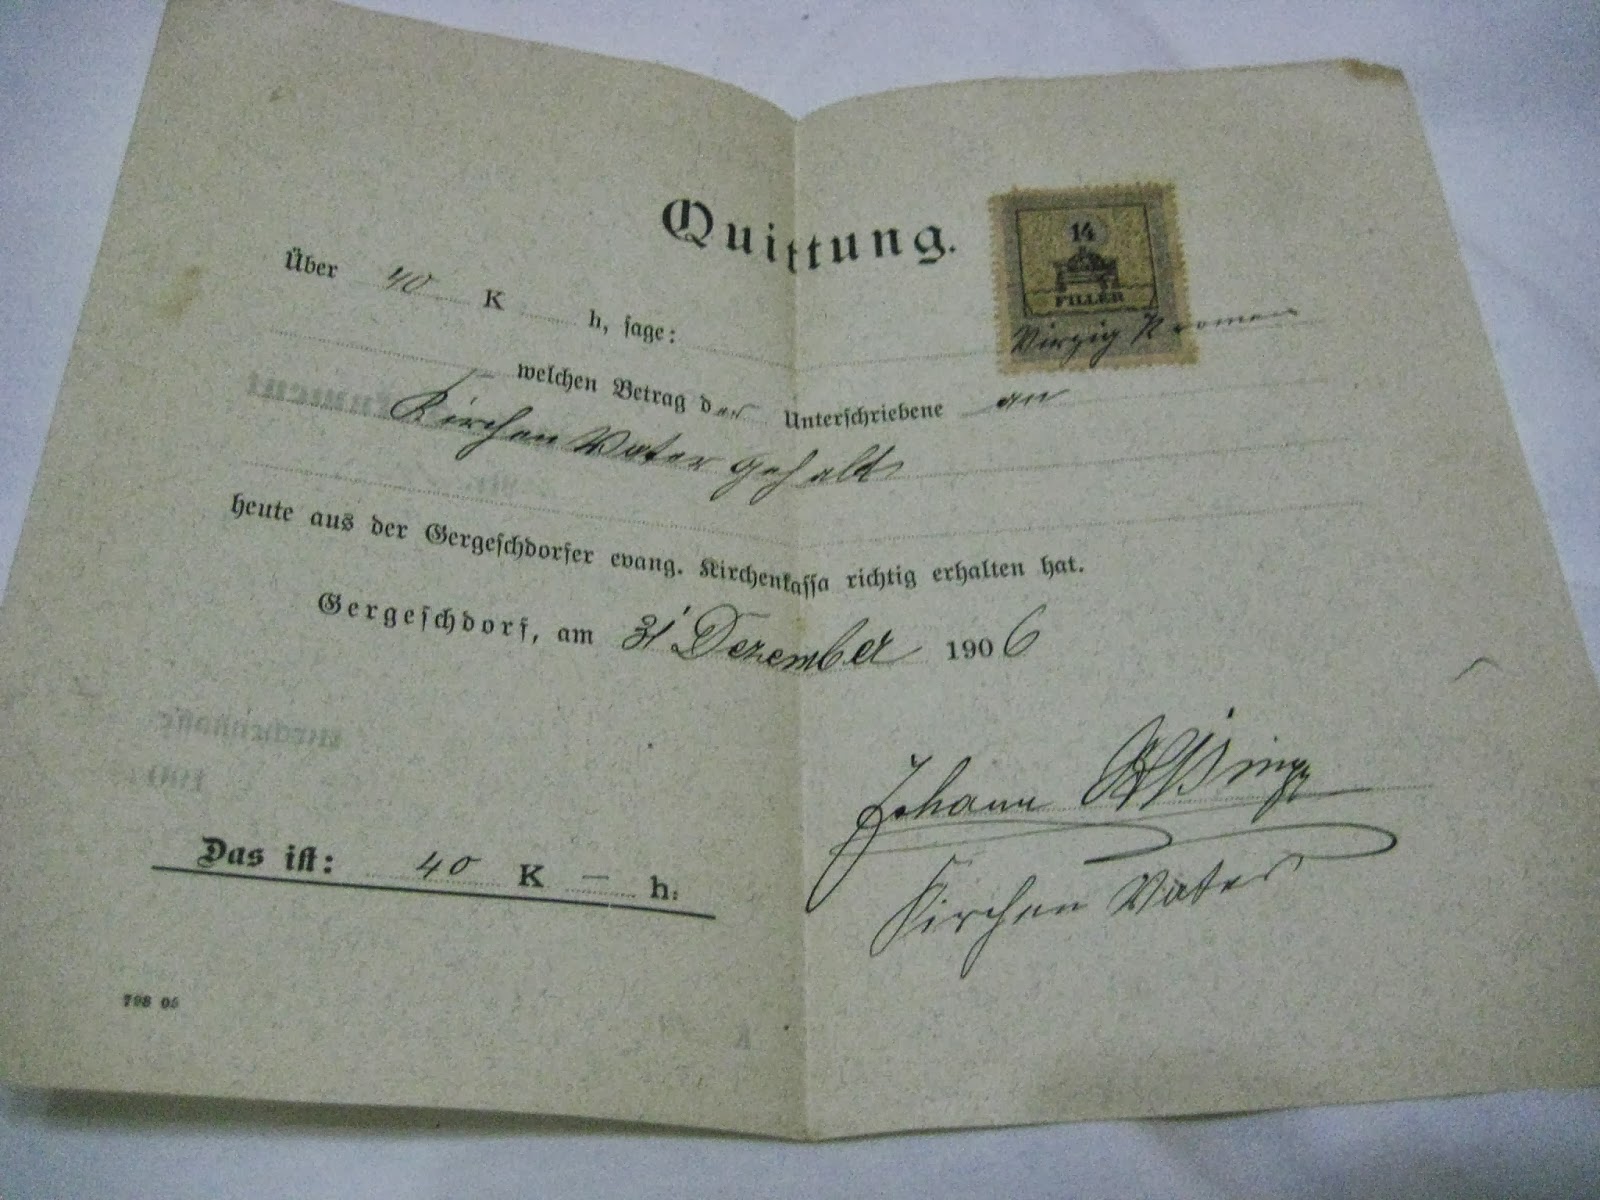 Quittung.
14
FILLÉR
Über 40 K h, sage:
Vierzig Kronen
welchen Betrag der Unterschriebene an
Kirchen Vater gehalt
heute aus der Gergeschdorfer evang. Kirchenkassa richtig erhalten hat.
Gergeschdorf, am 31 Dezember 1906
Johann
Kirchen Vater
Das ist: 40 K — h.
798 05